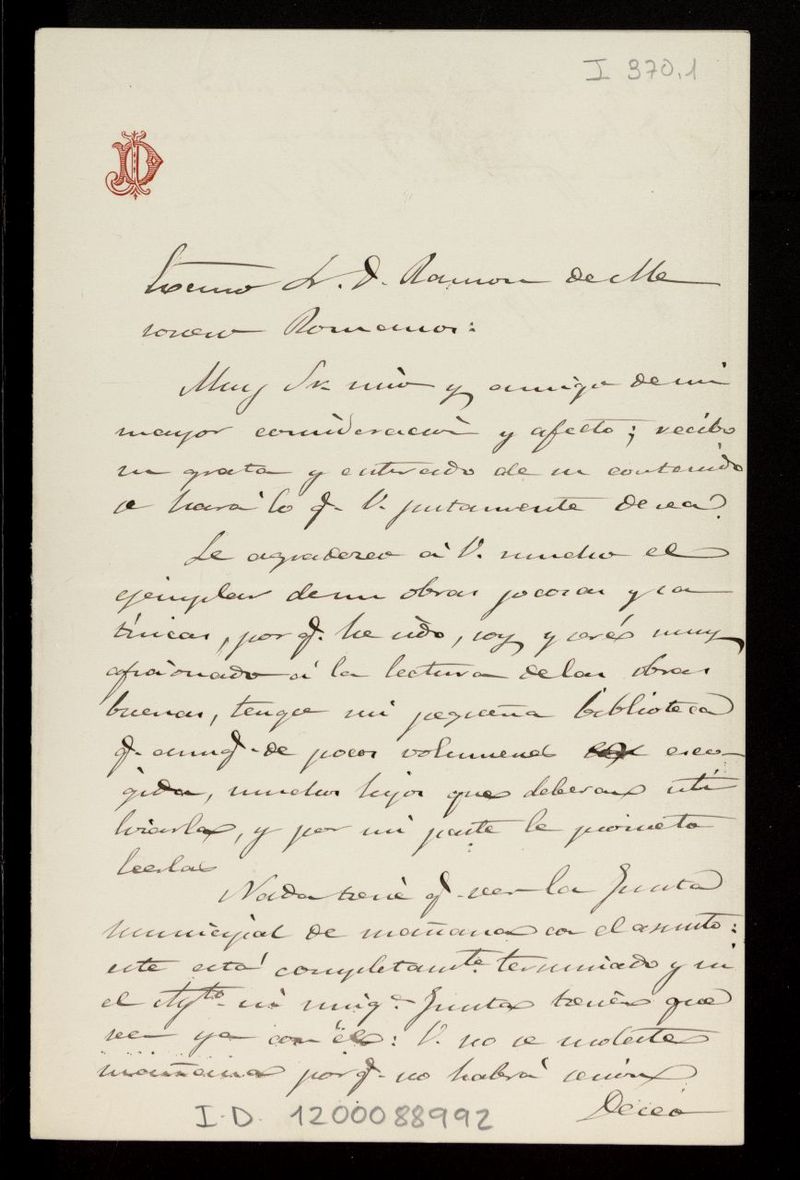 I 370,1
JD
Excmo Sr. D. Ramon de Me
sonero Romanos:
Muy Sr. mio y amigo de mi
mayor consideracion y afecto; recibo
su grata y enterado de su contenido
se hará lo q. V. justamente desea.
Le agradezco á V. mucho el
ejemplar de sus obras jocosas y sa
tíricas, por q. he sido, soy y seré muy
aficionado á la lectura de las obras
buenas, tengo mi pequeña biblioteca
q. aunq. de pocos volumenes esco-
gida, muchos hijos que deberan uti
lizarla, y por mi parte le prometo
leerlas
Nada tiene q. ver la Junta
municipal de mañana con el asunto:
este está completamte. terminado y ni
el Aytto. ni ningª. Junta tienen que
ver ya con él: V. no se moleste
mañana porq. no habrá sesion
Deseo
I.D. 1200088992